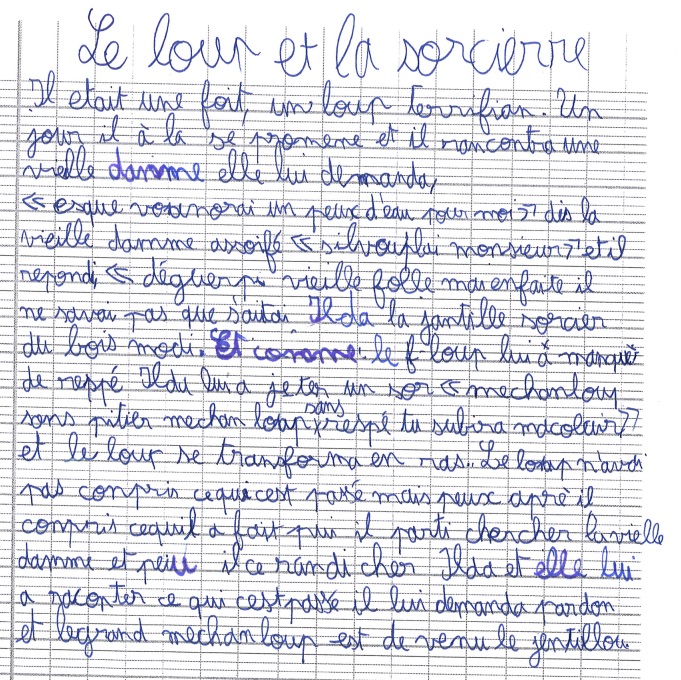 Le loup et la sorcierre
Il etait une foit, un loup terrifian. Un
jour il à la se promene et il rancontra une
vielle damme elle lui demanda,
« esque vousnorai un peux d'eau pour moi » dis la
vieille damme assoifé « silvouplai monsieur » et il
repondi, « déguerpi vieille folle mai enfaite il
ne savai pas que s'aitai Ilda la jantille sorcier
du bois modi. Et comme le f loup lui à manquer
de respé Ilda lui a jeter un sor « mechan loup
sans pitier mechan loup sans respé tu subira macolair »
et le loup se transforma en ras.. Le loup n'avai
pas compris cequicest passé mais peux aprè il
compris cequil a fait pui il parti chercher la vielle
damme et peiu il ce randi cher Ilda et elle lui
a raconter ce qui cestpassé il lui demanda pardon
et legrand mechan loup est de venu le jentil lou